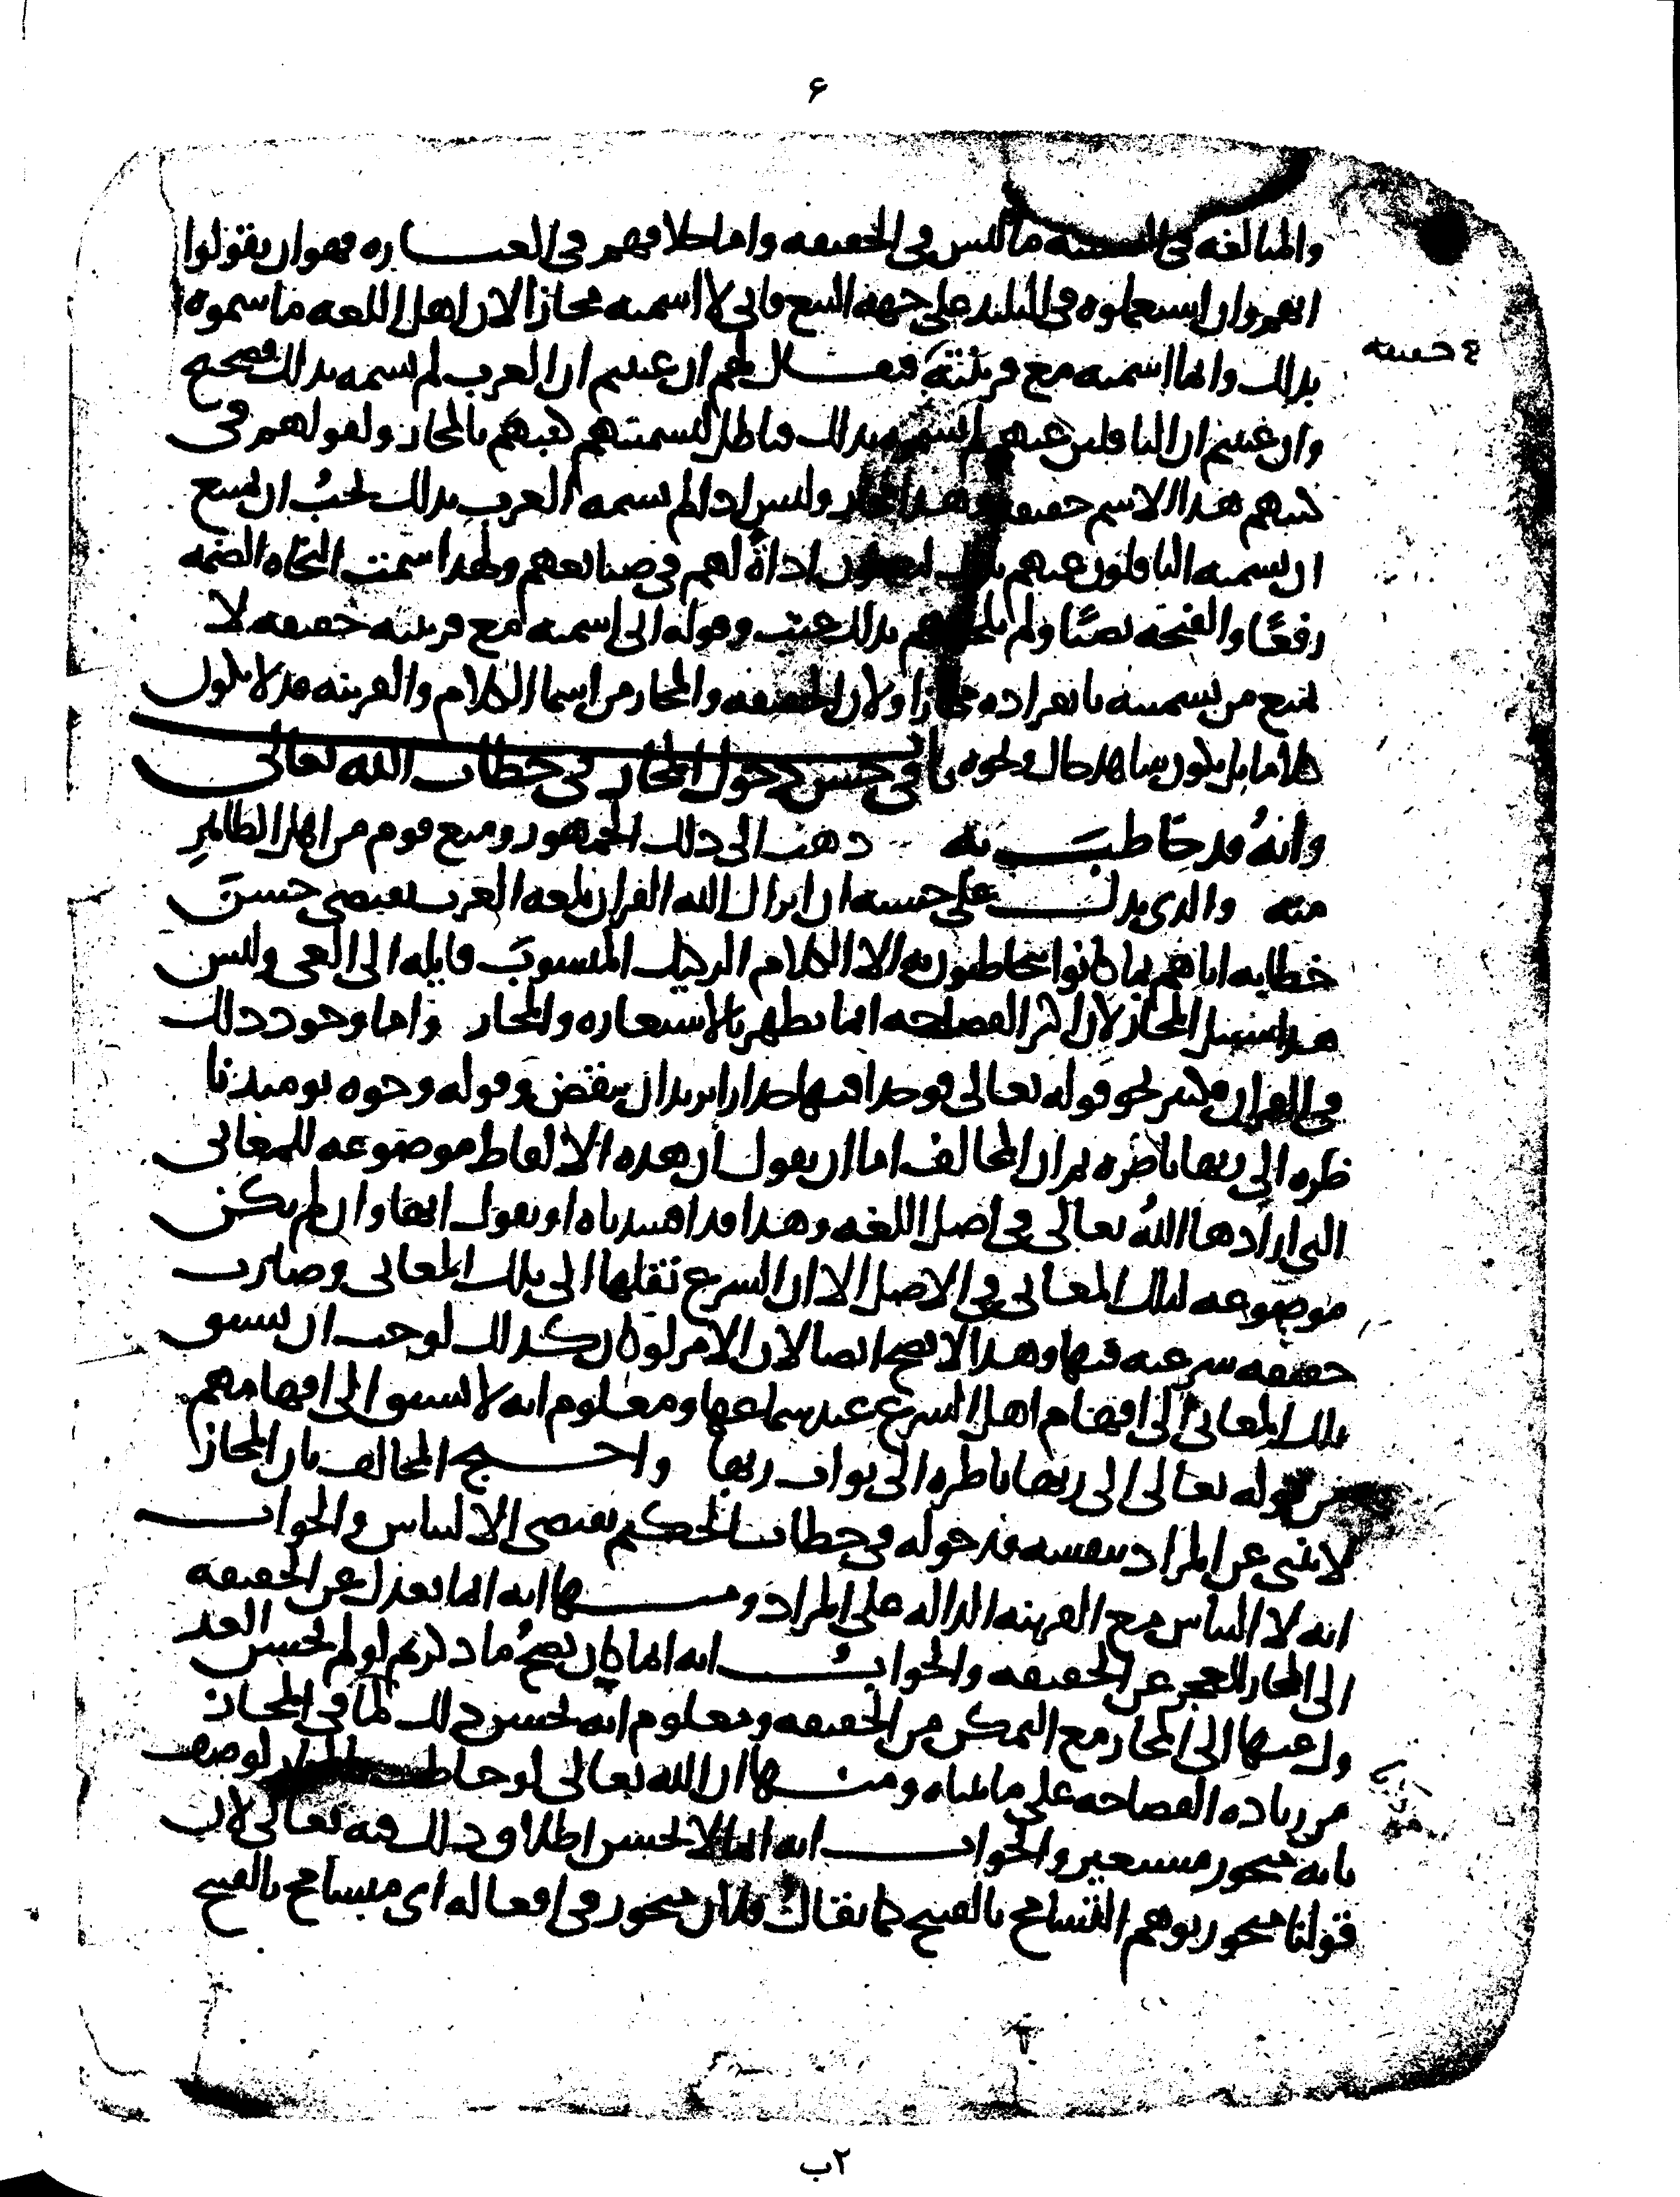 ۶
والمبالغه في ما ليس في الحقيقه واما خلافهم في العبـــاره فهو ان يقولوا
انهم وان استعملوه في البليد على جهه التبع فاني لا اسميه مجازا لان اهل اللغه ما سموه
بذلك وانما اسميه مع قرينته فيقـــال لهم ان عنيتم ان العرب لم تسمه بذلك فصحيح
وان عنيتم ان الناقلين عنهم لم يسموه بذلك فباطل لتسميتهم كتبهم بالمجاز ولقولهم في
كتبهم هذا الاسم حقيقه وهذا مجاز وليس اذا لم تسمه العرب بذلك يجبُ ان يمتنع
ان يسميه الناقلون عنهم بذلك اداةً لهم في صنائعهم ولهذا سمت النحاه الضمه
رفعًا والفتحه نصبًا ولم يلحقهم بذلك عيب وقوله اني اسميه مع قرينته حقيقه لا
يمنع من تسميته بانفراده مجازا ولان الحقيقه والمجاز من اسما الكلام والقرينه قد لا تكون
كلاما بل تكون شاهد حال ونحوه باب في حسن دخول المجاز في خطاب الله تعالى
وانهُ قد خاطبَ به ذهب الى ذلك الجمهور ومنع قوم من اهل الظاهر
منه والذي يدل على حسنه ان انزال الله القران بلغه العرب يقتضي حسنَ
خطابه اياهم بما كانوا يتخاطبون به الا الكلام الركيك المنسوبَ قايله الى العي وليس
هذا سبيل المجاز لان اكثر الفصاحه انما تظهر بالاستعاره والمجاز واما وجود ذلك
في القران فكثير نحو قوله تعالى فوجدا فيها جدارا يريد ان ينقض وقوله وجوه يوميذ نا
ضره الى ربها ناظره ثم ان المخالف اما ان يقول ان هذه الالفاظ موضوعه للمعاني
التي ارادها اللهُ تعالى في اصل اللغه وهذا قد افسدناه او يقول انها وان لم يكن
موضوعه لتلك المعاني في الاصل الا ان الشرع نقلها الى تلك المعاني وصارت
حقيقه شرعيه فيها وهذا لا يصح ايضا لان الامر لو كان كذلك لوجب ان يسبق
تلك المعاني الى افهام اهل الشرع عند سماعها ومعلوم انه لا يسبق الى افهامهم
من قوله تعالى الى ربها ناظره الى ثواب ربها واحـــتج المخالف بان المجاز
لا ينبي عن المراد بنفسه فدخوله في خطاب الحكيم يقتضي الالباس والجواب
انه لا الباس مع القرينه الداله على المراد ومنـــها انه انما يعدل عن الحقيقه
الى المجاز للعجز عن الحقيقه والجوابُ انه انما كان يصحُ ما ذكرتم لو لم يحسن العد
ول عنها الى المجاز مع التمكن من الحقيقه ومعلوم انه يحسن ذلك لما في المجاز
من زياده الفصاحه على ما بيناه ومنـــها ان الله تعالى لو خاطب بالمجاز لوصف
بانه متجوز مستعير والجواب انه انما لا يحسن اطلاق ذلك فيه تعالى لان
قولنا متجوز يوهم التسامح بالقبيح كما يقال فلان متجوز في افعاله اي متسامح بالقبيح
٢ب